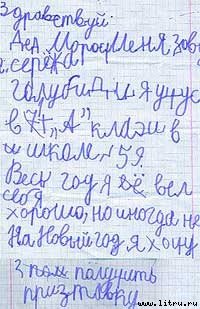 Здравствуй
Дед Мороз Меня зов
сережа
голубиди я учус
в 7 "А" класи в
школе 59.
Весь год я вё вел
себя
хорошо, но иногда не
На Новый год я хочу
получить
приставку
www.litru.ru